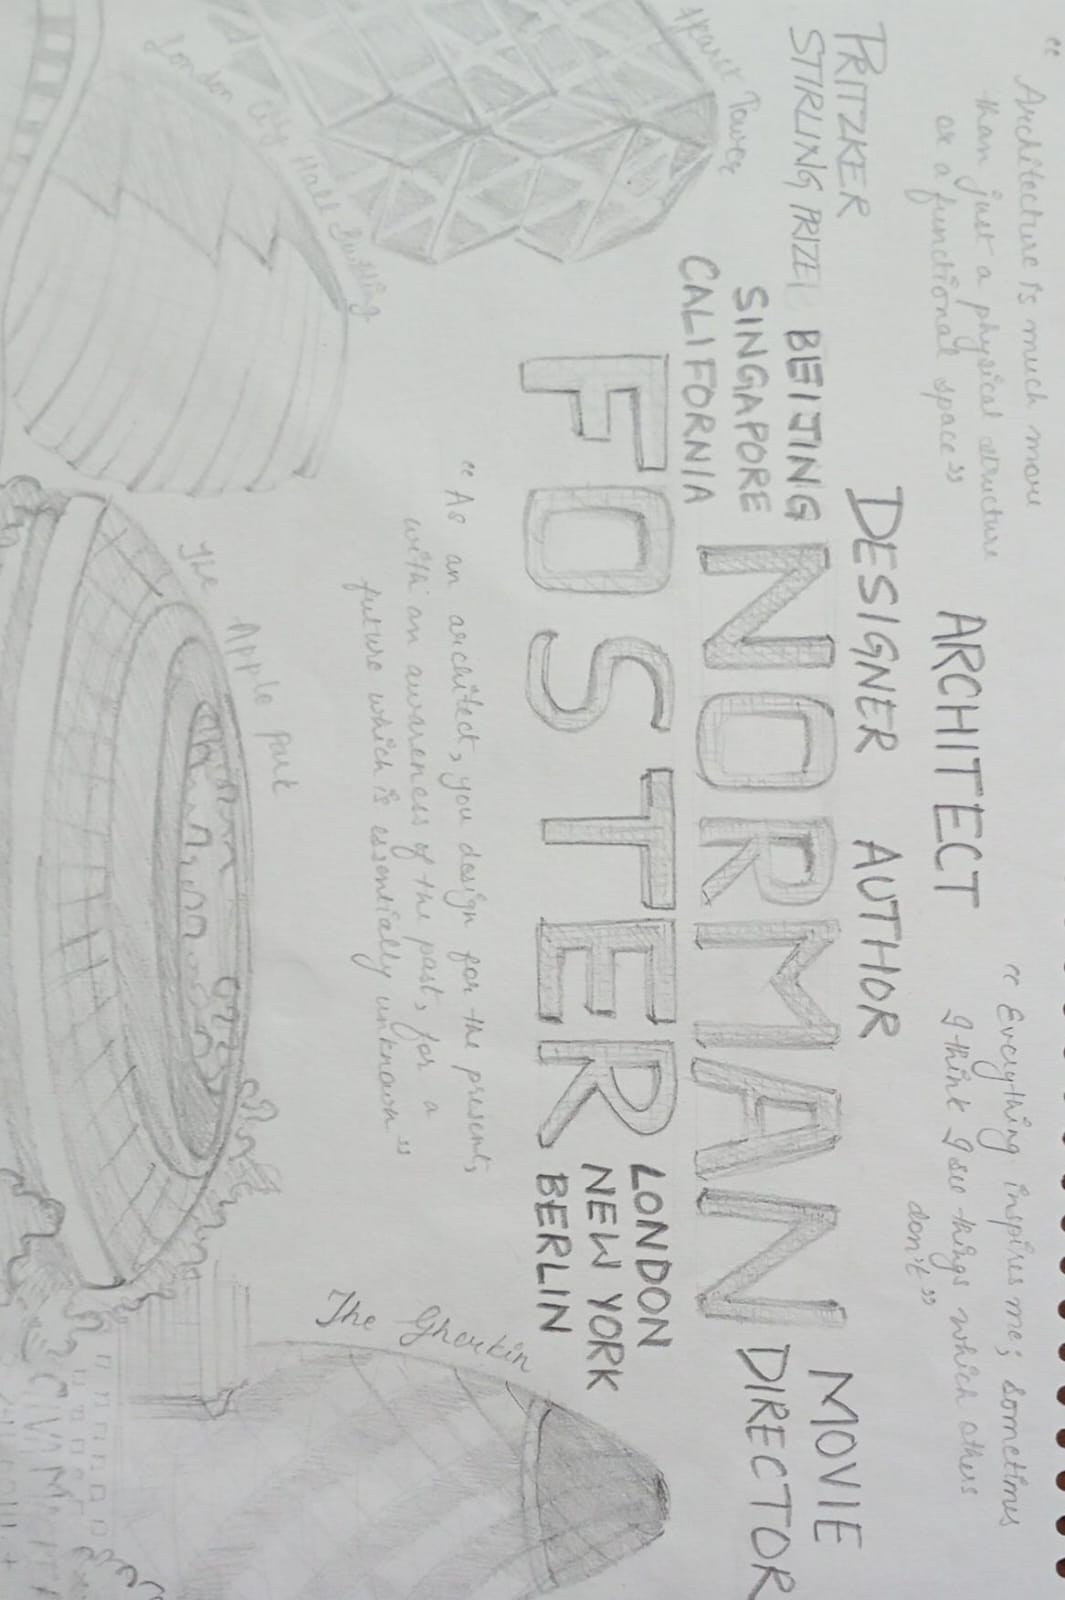 “ Architecture is much more
than just a physical structure
or a functional space”
“ Everything inspires me; sometimes
I think I see things which others
don't”
ARCHITECT
DESIGNER AUTHOR
PRITZKER
STIRLING PRIZE
MOVIE
DIRECTOR
BEIJING
SINGAPORE
CALIFORNIA
NORMAN
FOSTER
LONDON
NEW YORK
BERLIN
“ As an architect, you design for the present,
with an awareness of the past, for a
future which is essentially unknown”
Tower
London City Hall Building
The Apple park
The Gherkin